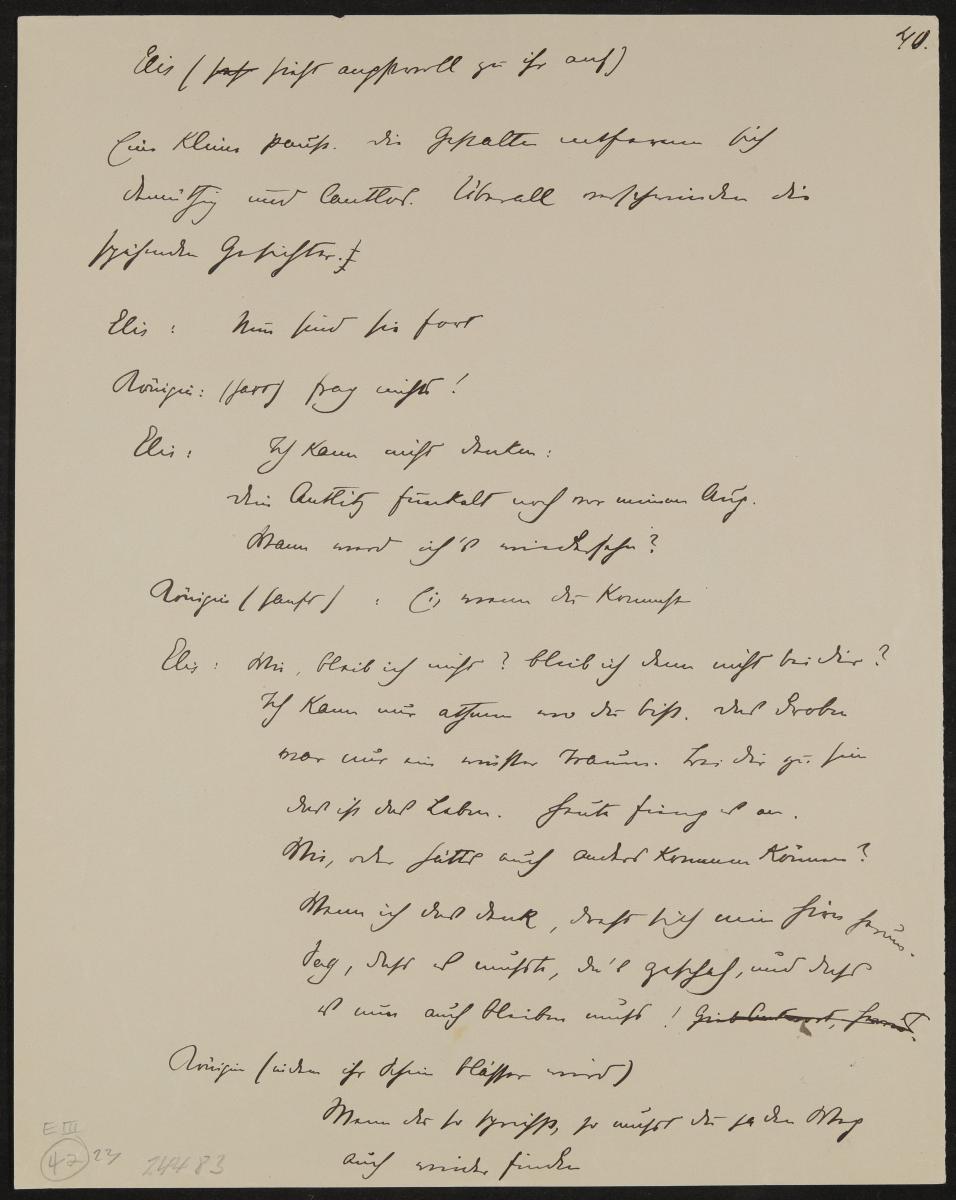 40.
Elis (sah sieht angstvoll zu ihr auf)
Eine kleine Pause. Die Gestalten entfernen sich
demütig und lautlos. Überall verschwinden die
spähenden Gesichter.
Elis: Nun sind sie fort
Königin: (hart) frag nicht!
Elis: Ich kann nicht denken:
dein Antlitz funkelt noch vor meinem Aug.
Wann werd ich's wiedersehn?
Königin (sanft): Ei, wenn du kommst
Elis: Wie, bleib ich nicht? bleib ich denn nicht bei dir?
Ich kann nur athmen wo du bist. Das droben
war nur ein wüster Traum. Bei dir zu sein
das ist das Leben. Heute fieng es an.
Wie, oder hätts auch anders kommen können?
Wenn ich das denk, dreht sich mein Hirn herum.
Sag, dass es musste, da's geschah, und dass
es nun auch bleiben muss! Gieb Antwort,
Königin (indem ihr Schein blässer wird)
Wenn du so sprichst, so musst du ja den Weg
auch wieder finden
E III
42 23
24483